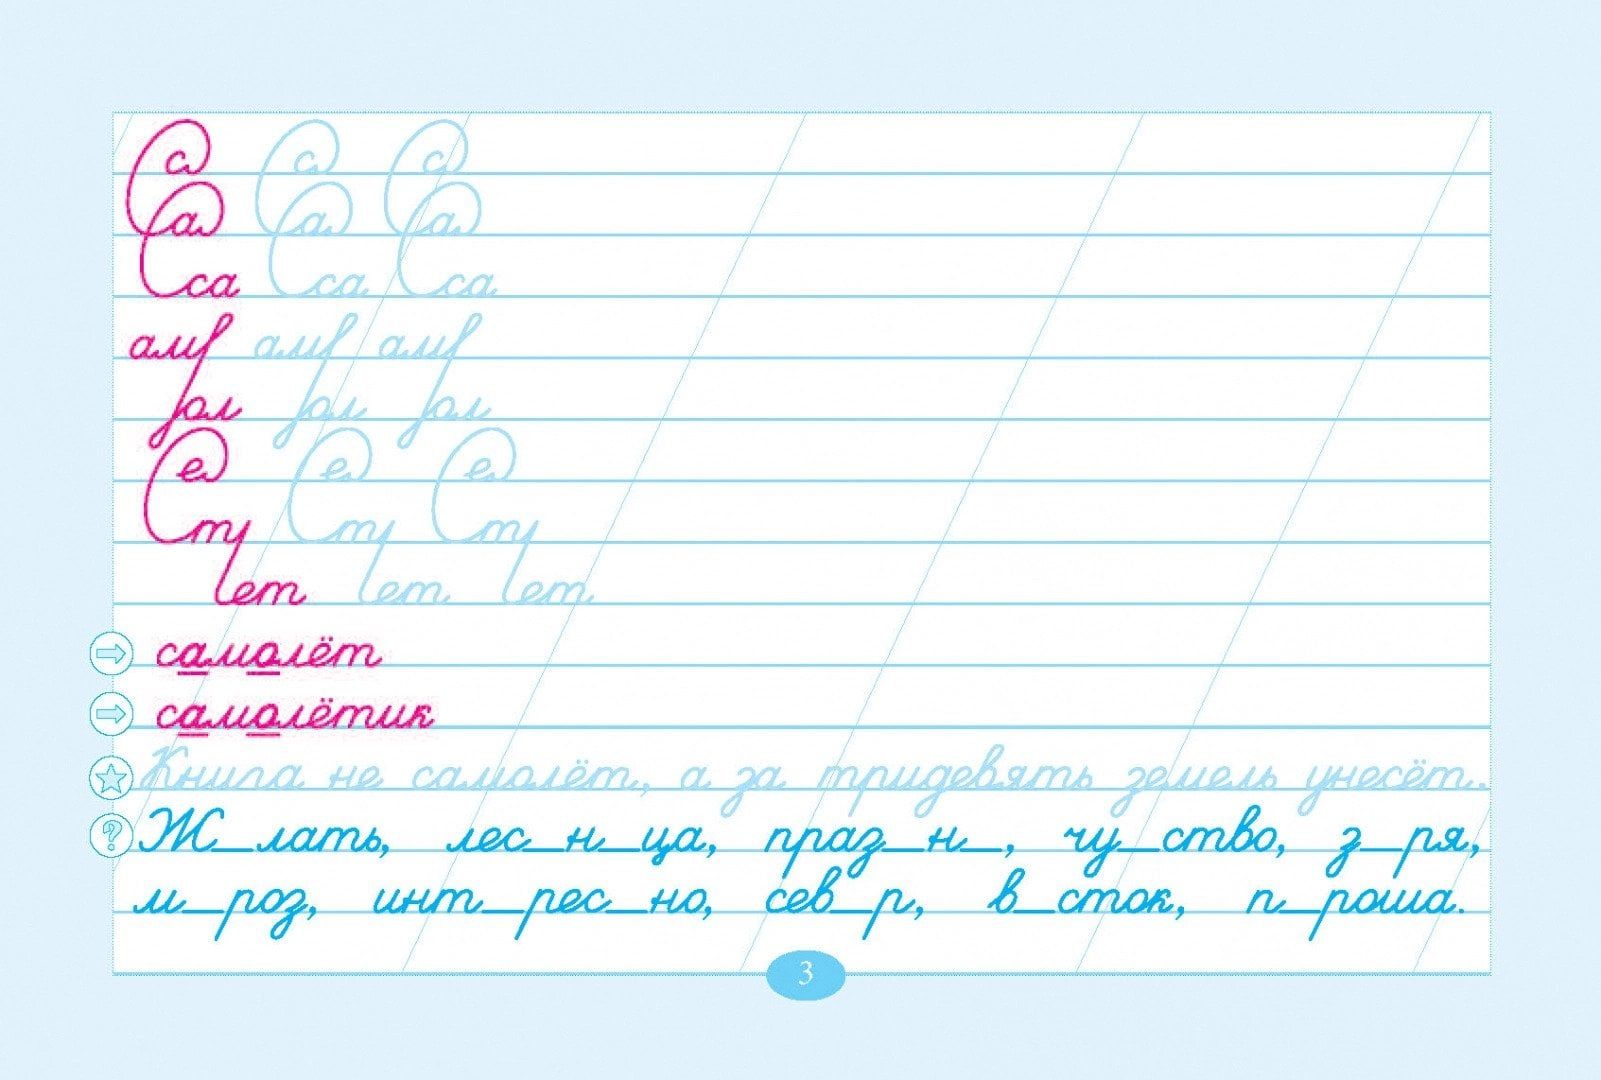 Са Са Са
Са Са Са
са са са
амр амр амр
рол рол рол
Се Се Се
тч тч тч
ет ет ет
самолёт
самолётик
Книга не самолёт, а за тридевять земель унесёт.
Ж_лать, лес_н_ца, праз_н_, чу_ство, з_ря,
м_роз, инт_рес_но, сев_р, в_сток, п_роша.
3